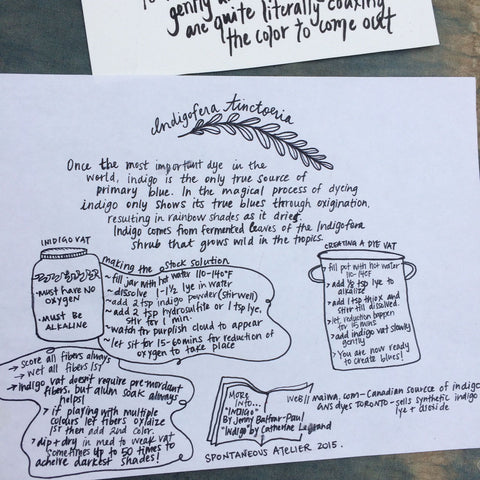 genny a
are quite literally coaxing
the color to come out
Indigofera tinctoria
Once the most important dye in the
world, indigo is the only true source of
primary blue. In the magical process of dyeing
indigo only shows its true blues through oxigination,
resulting in rainbow shades as it dries.
Indigo comes from fermented leaves of the Indigofera
shrub that grows wild in the tropics.
INDIGO VAT
-must have NO
OXYGEN
-MUST BE
ALKALINE
making the stock solution
~ fill jar with hot water 110-140°F
~ dissolve 1-1½ lye in water
~ add 2 tsp indigo powder (stir well)
~ add 2 tsp hydrosulfite or 1 tsp lye,
stir for 1 min.
~ watch for purplish cloud to appear
~ let sit for 15-60 mins for reduction of
oxygen to take place
CREATING A DYE VAT
fill pot with hot water
110-140F
> add ½ tsp lye to
alkalize
> add 1 tsp thiox and
stir till dissolved.
let reduction happen
for 15 mins
> add indigo vat slowly
gently
> You are now ready
to create blues!
→ scour all fibers always
→ wet all fibers 1st
→ indigo vat doesn't require pre-mordant
fibers, but alum soak always
helps!
> if playing with multiple
colours let fibers oxidize
1st then add 2nd color.
> dip + dry in med to weak vat
sometimes up to 50 times to
acheive darkest shades!
MORE
INTO...
"INDIGO"
BY Jenny Balfour-Paul
"Indigo" by Catherine Legrand
maiwa.com - Canadian source of indigo
dyes TORONTO - sells synthetic indigo
lye +
SPONTANEOUS ATELIER 2015.